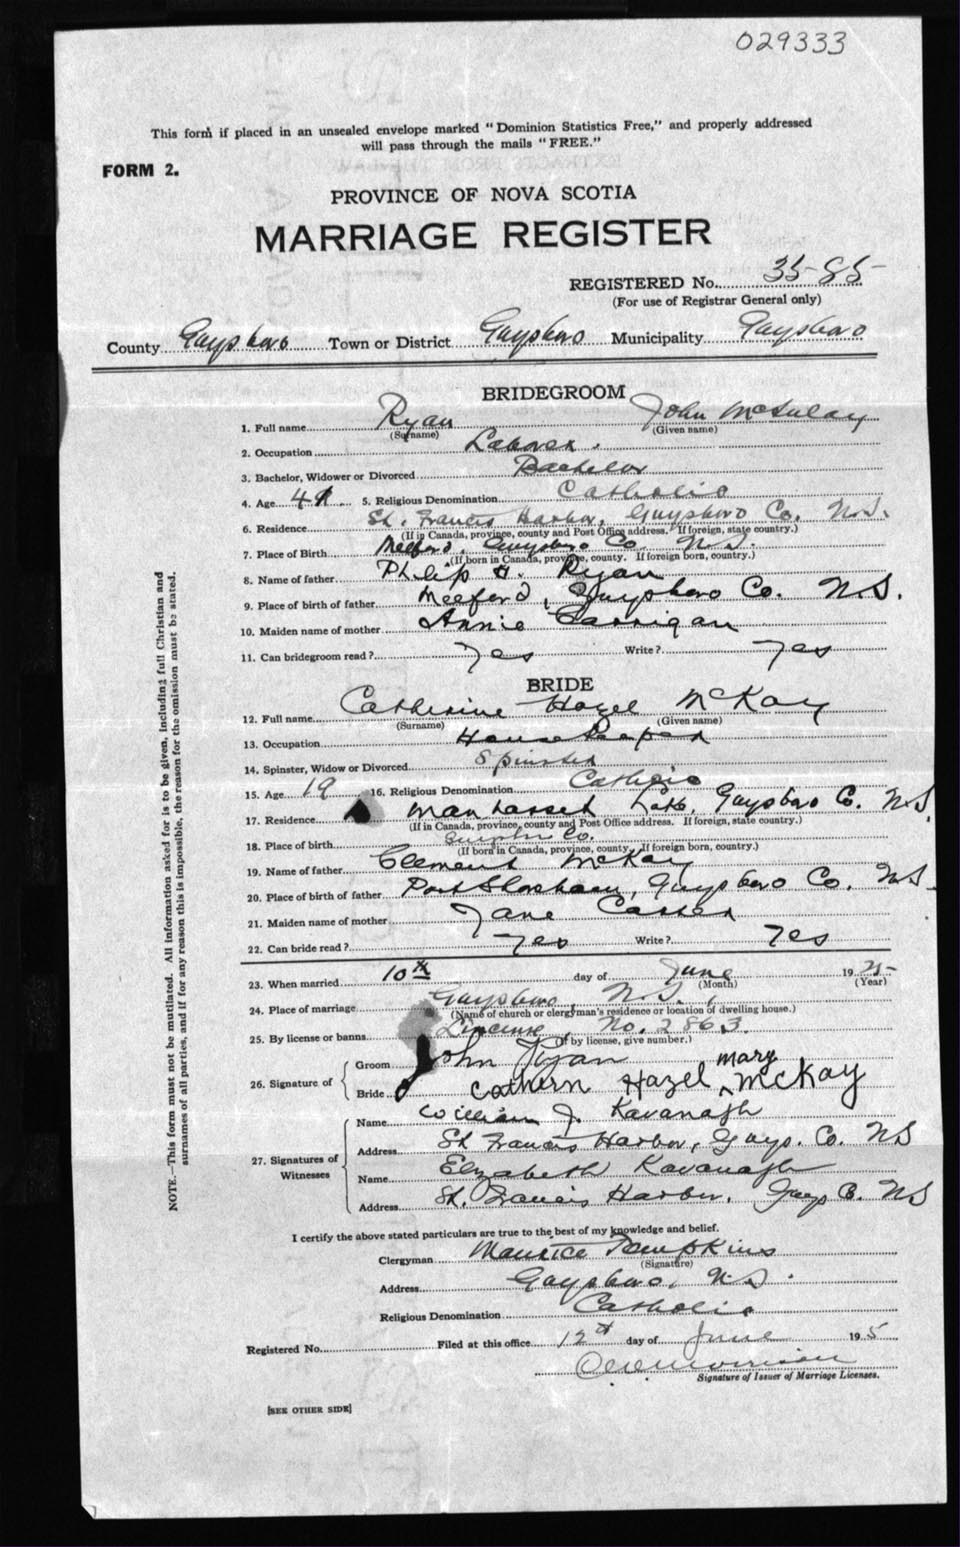 029333
This form if placed in an unsealed envelope marked "Dominion Statistics Free," and properly addressed
will pass through the mails "FREE."
FORM 2.
PROVINCE OF NOVA SCOTIA
MARRIAGE REGISTER
REGISTERED No. 35-85-
(For use of Registrar General only)
County Guysboro Town or District Guysboro Municipality Guysboro
BRIDEGROOM
1. Full name Ryan John
(Surname) (Given name)
2. Occupation Laborer.
3. Bachelor, Widower or Divorced Bachelor
4. Age 5. Religious Denomination Catholic
6. Residence St. Francis Harbor, Guysboro Co. N.S.
(If in Canada, province, county and Post Office address. If foreign, state country.)
7. Place of Birth Guysboro Co N.S.
(If born in Canada, province, county. If foreign born, country.)
8. Name of father Philip Ryan
9. Place of birth of father Guysboro Co. N.S.
10. Maiden name of mother Annie Carrigan
11. Can bridegroom read? Yes Write? Yes
BRIDE
12. Full name Catherine Hazel McKay
(Surname) (Given name)
13. Occupation House Keeper
14. Spinster, Widow or Divorced Spinster
15. Age 19 16. Religious Denomination Catholic
17. Residence Lake, Guysboro Co. N.S.
(If in Canada, province, county and Post Office address. If foreign, state country.)
18. Place of birth Guysboro Co.
(If born in Canada, province, county. If foreign born, country.)
19. Name of father Clement McKay
20. Place of birth of father Guysboro Co. N.S.
21. Maiden name of mother Jane
22. Can bride read? Yes Write? Yes
23. When married 10th day of June 1925
(Month) (Year)
24. Place of marriage Guysboro, N.S.
(Name of church or clergyman's residence or location of dwelling house.)
25. By license or banns License, No. 2863.
(If by license, give number.)
26. Signature of
Groom John Ryan
mary
Bride Cathern Hazel McKay
27. Signatures of Witnesses
Name William J. Kavanagh
Address St Francis Harbor, Guys. Co. NS
Name Elizabeth Kavanagh
Address St. Francis Harbor, Guys Co. NS
I certify the above stated particulars are true to the best of my knowledge and belief.
Clergyman Maurice Tompkins
(Signature)
Address Guysboro, N.S.
Religious Denomination Catholic
Registered No. Filed at this office 12th day of June 195
Morrison
Signature of Issuer of Marriage Licenses.
[SEE OTHER SIDE]
NOTE.—This form must not be mutilated. All information asked for is to be given, including full Christian and
surnames of all parties, and if for any reason this is impossible, the reason for the omission must be stated.